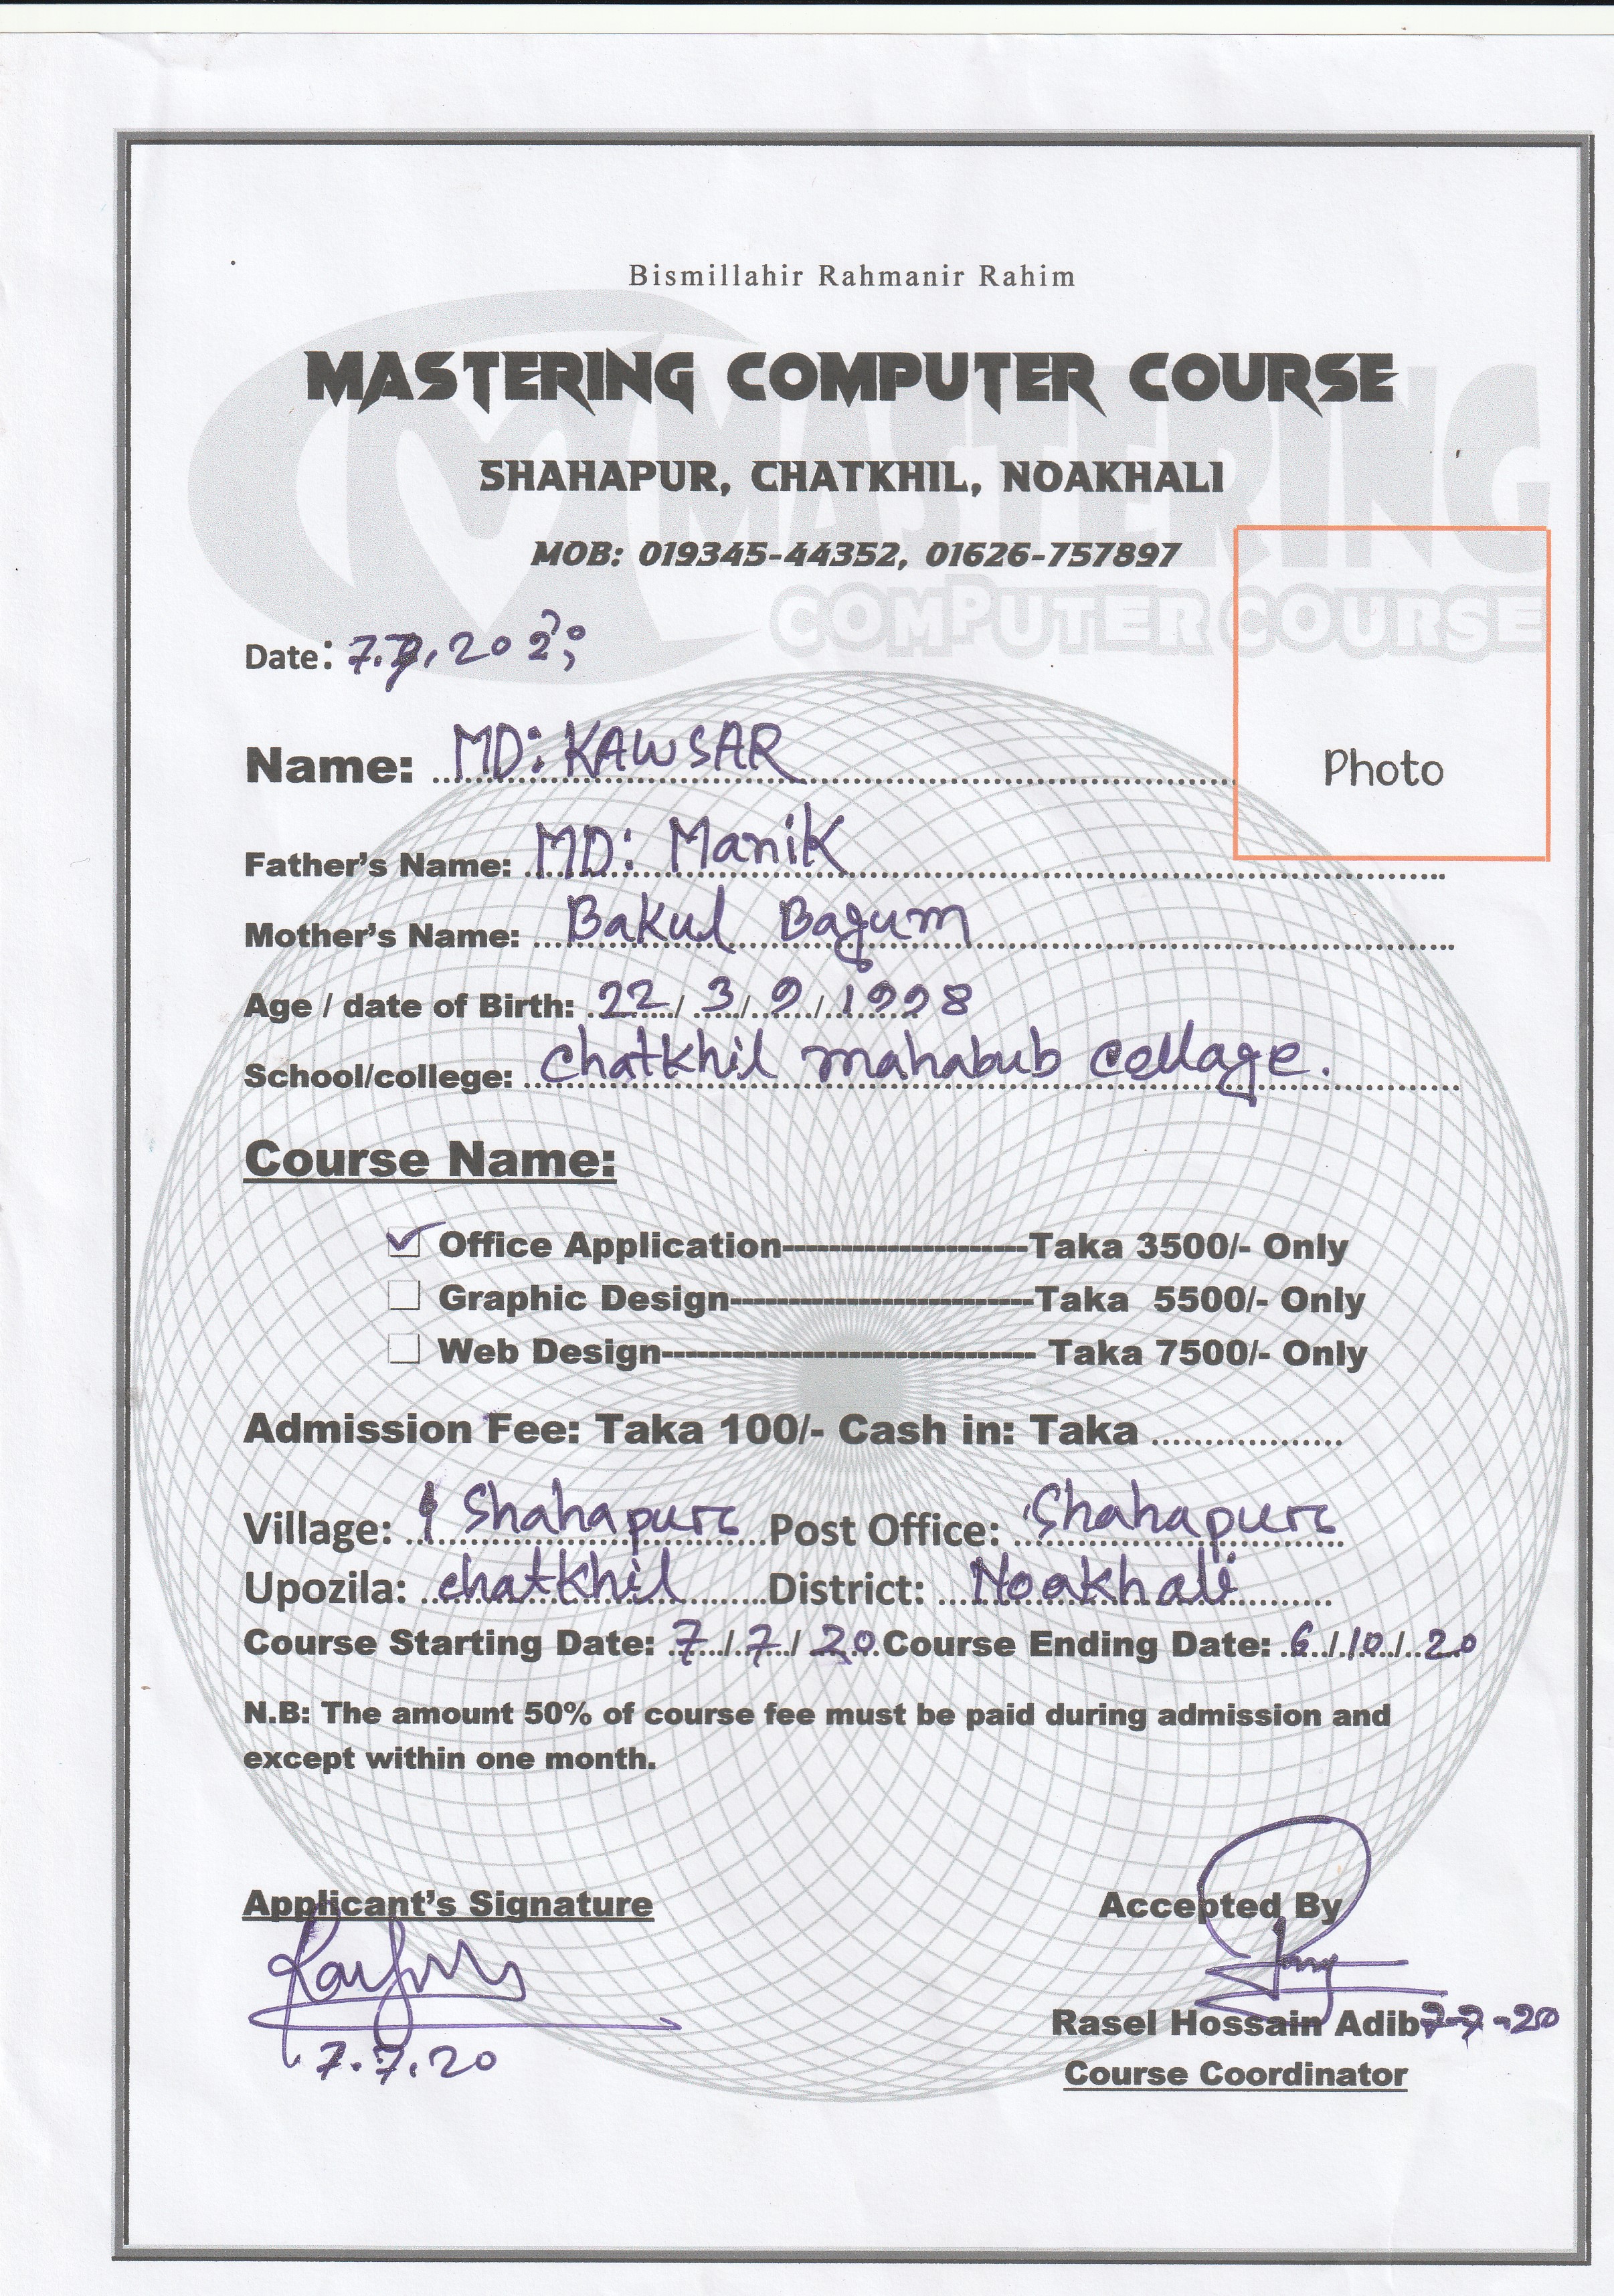 Bismillahir Rahmanir Rahim
MASTERING COMPUTER COURSE
SHAHAPUR, CHATKHIL, NOAKHALI
MOB: 019345-44352, 01626-757897
MASTERING
COMPUTER COURSE
Date: 7.7.2020
Name: MD: KAWSAR
Photo
Father's Name: MD: Manik
Mother's Name: Bakul Bagum
Age / date of Birth: 22/ 3/ 9/ 1998
School/college: chatkhil mahabub collage.
Course Name:
Office Application--------------------Taka 3500/- Only
Graphic Design-------------------------Taka 5500/- Only
Web Design------------------------------- Taka 7500/- Only
Admission Fee: Taka 100/- Cash in: Taka ..................
Village: Shahapur Post Office: Shahapur
Upozila: chatkhil District: Noakhali
Course Starting Date: 7/7/20 Course Ending Date: 6/10/20
N.B: The amount 50% of course fee must be paid during admission and
except within one month.
Applicant's Signature Accepted By
7.7.20
Rasel Hossain Adib 7-7-20
Course Coordinator